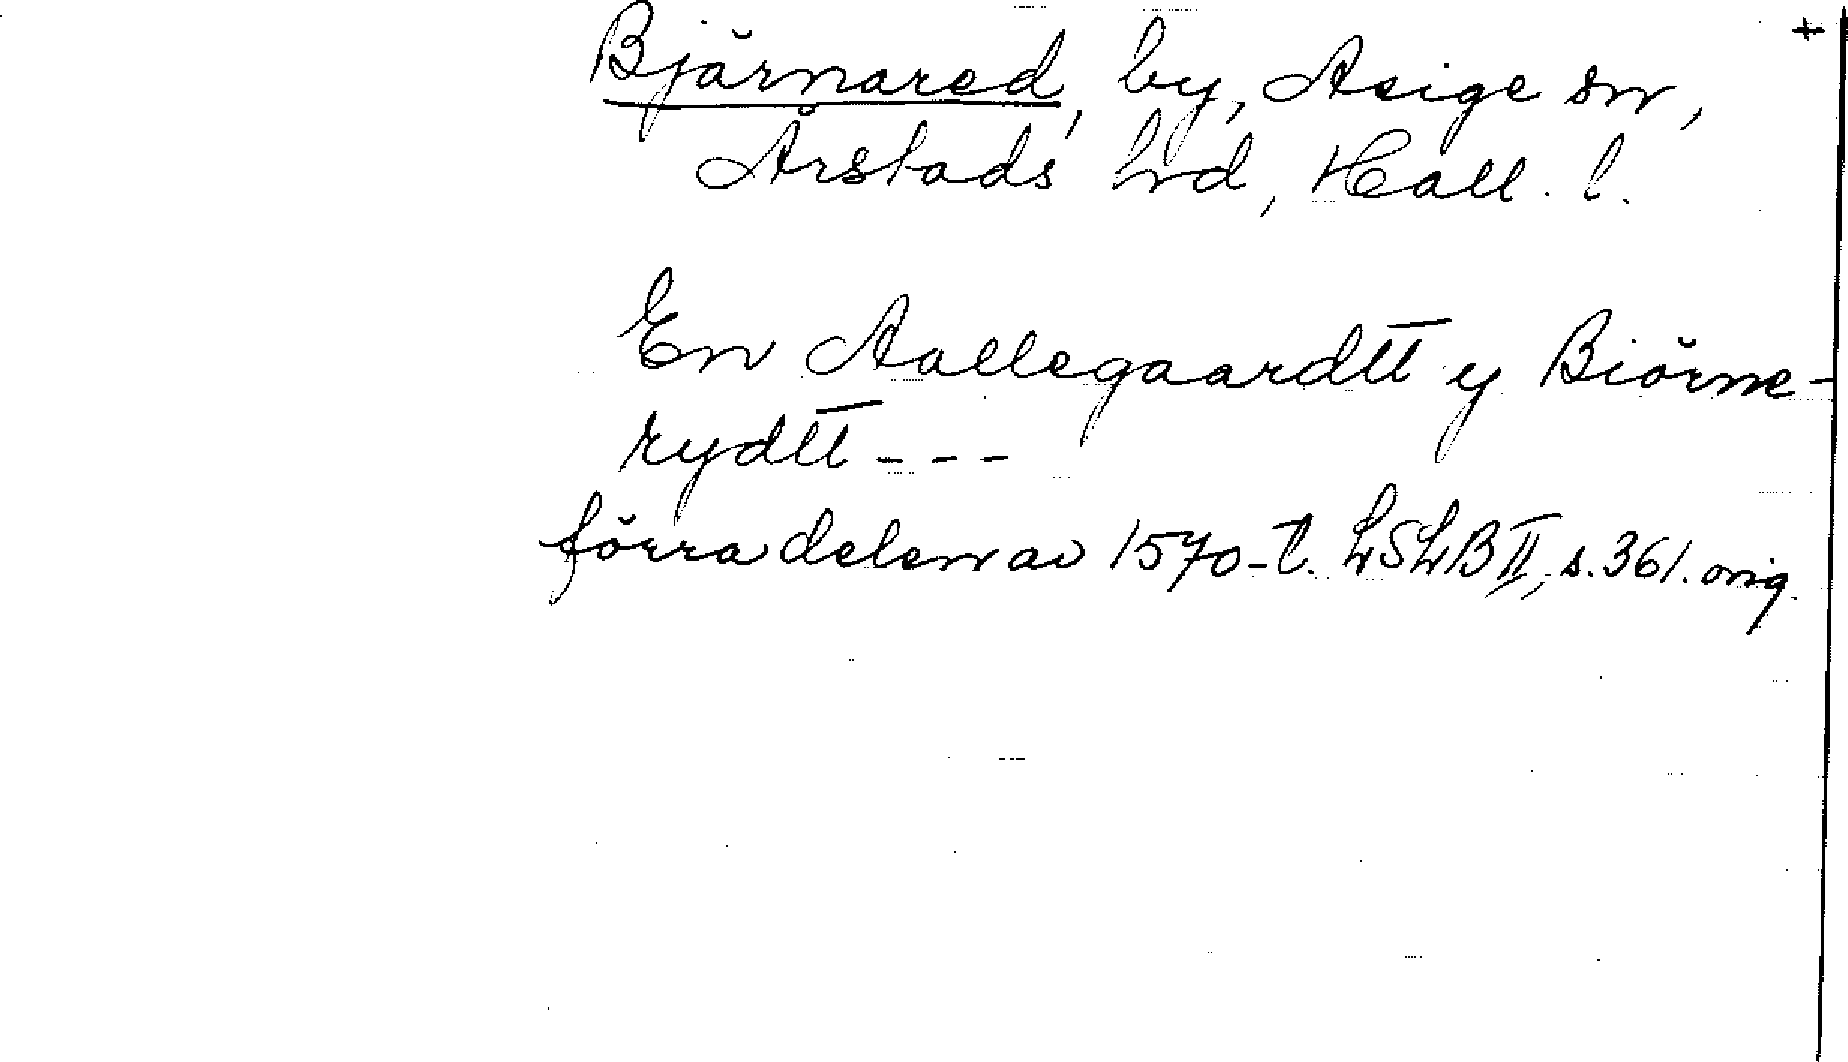 Bjärnared, by, Asige sn,
Årstads hrd, Hall. l.
En Aallegaardtt y Biörne-
rydtt - - -
förra delen av 1570-t. LSLB II, s. 361. orig.